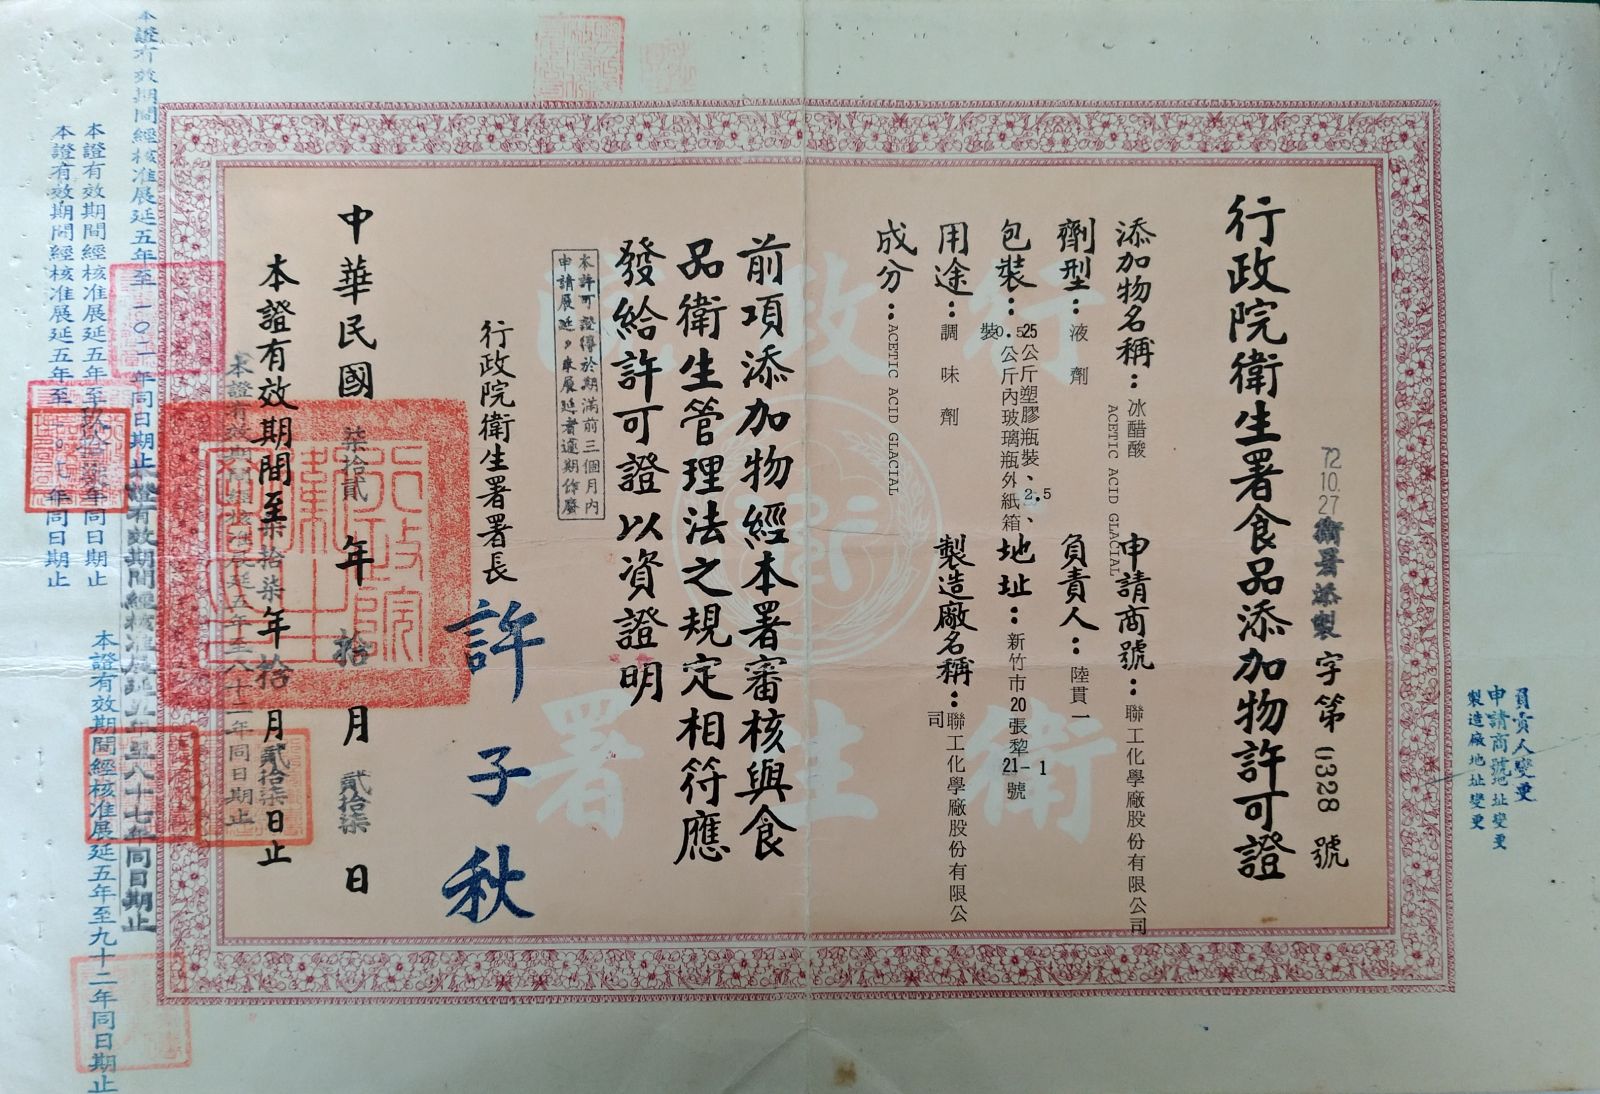 員責人變更
申請商號地址變更
製造廠地址變更
72.10.27
衛署添製字第011328號
行政院衛生署食品添加物許可證
添加物名稱：冰醋酸
ACETIC ACID GLACIAL
申請商號：聯工化學廠股份有限公司
劑型：液劑
負責人：陸貫一
包裝：25公斤塑膠瓶裝、2.5、
0.5公斤內玻璃瓶外紙箱
裝
地址：新竹市20張犂21-1號
用途：調味劑
製造廠名稱：聯工化學廠股份有限公
司
成分：ACETIC ACID GLACIAL
前項添加物經本署審核與食
品衛生管理法之規定相符應
發給許可證以資證明
本許可證得於期滿前三個月內
申請展延，未展延者逾期作廢
行政院衛生署署長 許子秋
中華民國柒拾貳年拾月貳拾柒日
本證有效期間至柒拾柒年拾月貳拾柒日止
本證有效期間經核准展延五年至八十二年同日期止
本證有效期間經核准展延五年至八十七年同日期止
本證有效期間經核准展延五年至九十二年同日期止
本證有效期間經核准展延五年至一〇二年同日期止
本證有效期間經核准展延五年至玖拾柒年同日期止
本證有效期間經核准展延五年至一〇七年同日期止
行政院衛生署